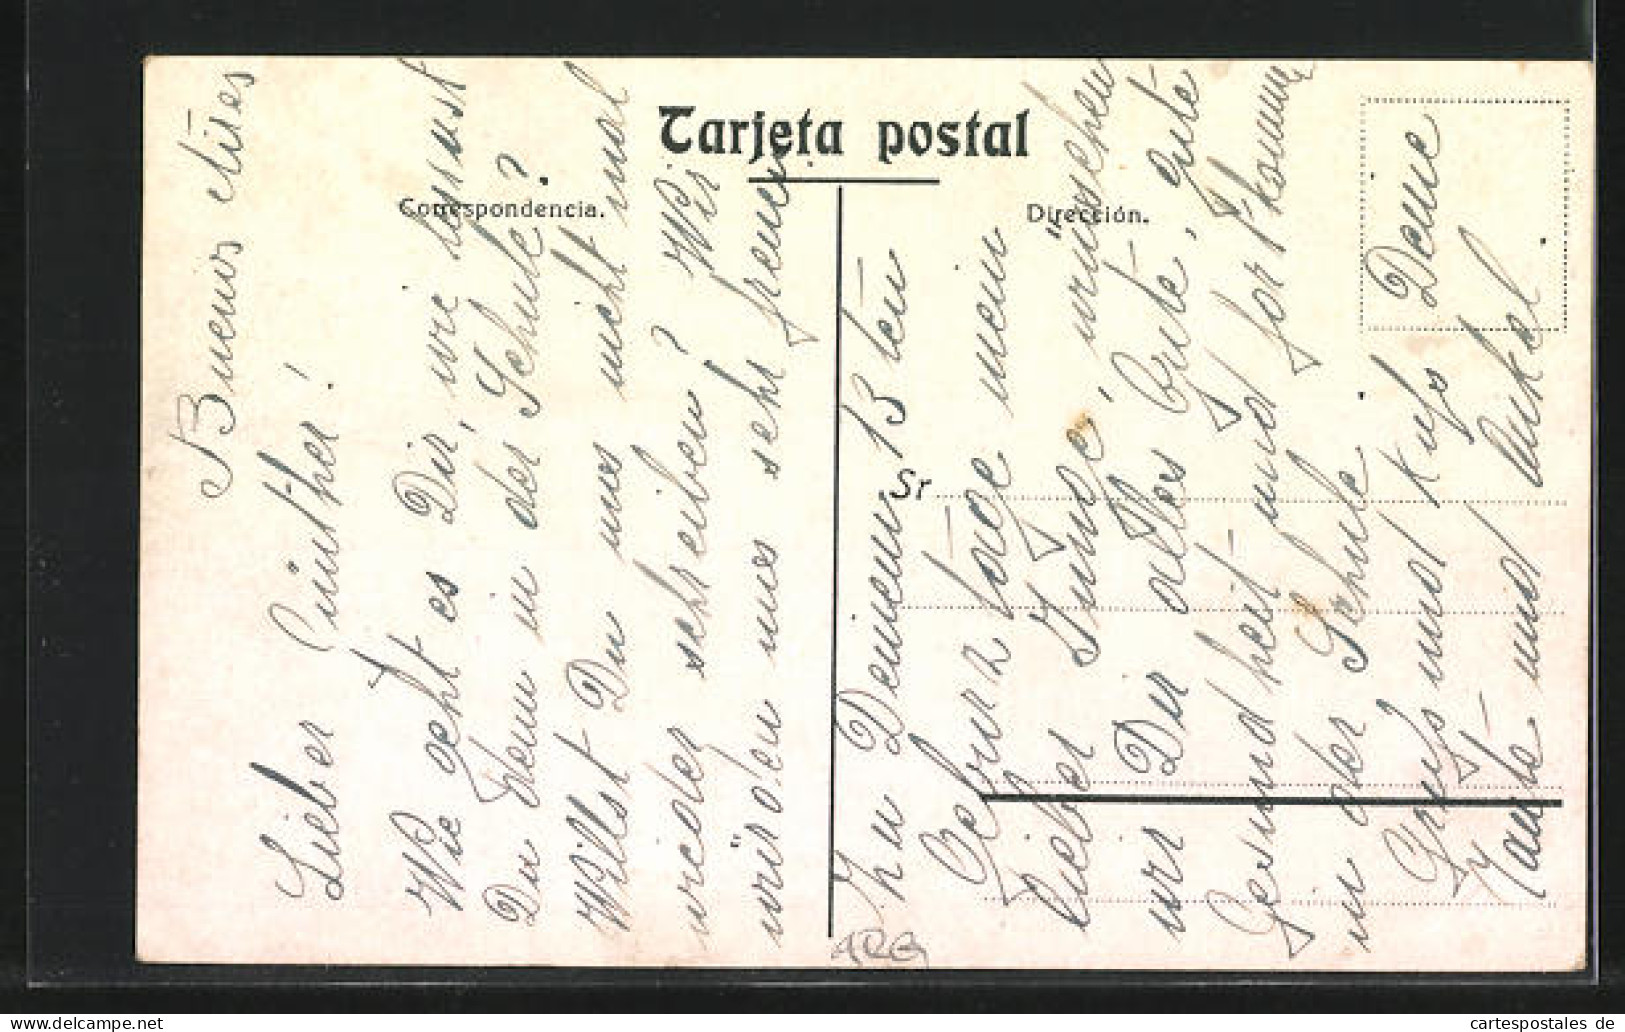 Tarjeta postal
Correspondencia.
Dirección.
Sr
Buenos Aires
Lieber Günther!
Wie geht es Dir, wie lernst
Du denn in der Schule?
Willst Du uns nicht mal
wieder schreiben? Wir
würden uns sehr freuen
Zu Deinem 13 ten
Geburtstage mein
lieber Junge, wünschen
wir Dir alles Gute, gute
Gesundheit und fortkommen
in der Schule.
Gruß und Kuß Deine
Tante und Onkel.
ARG
cartespostales de